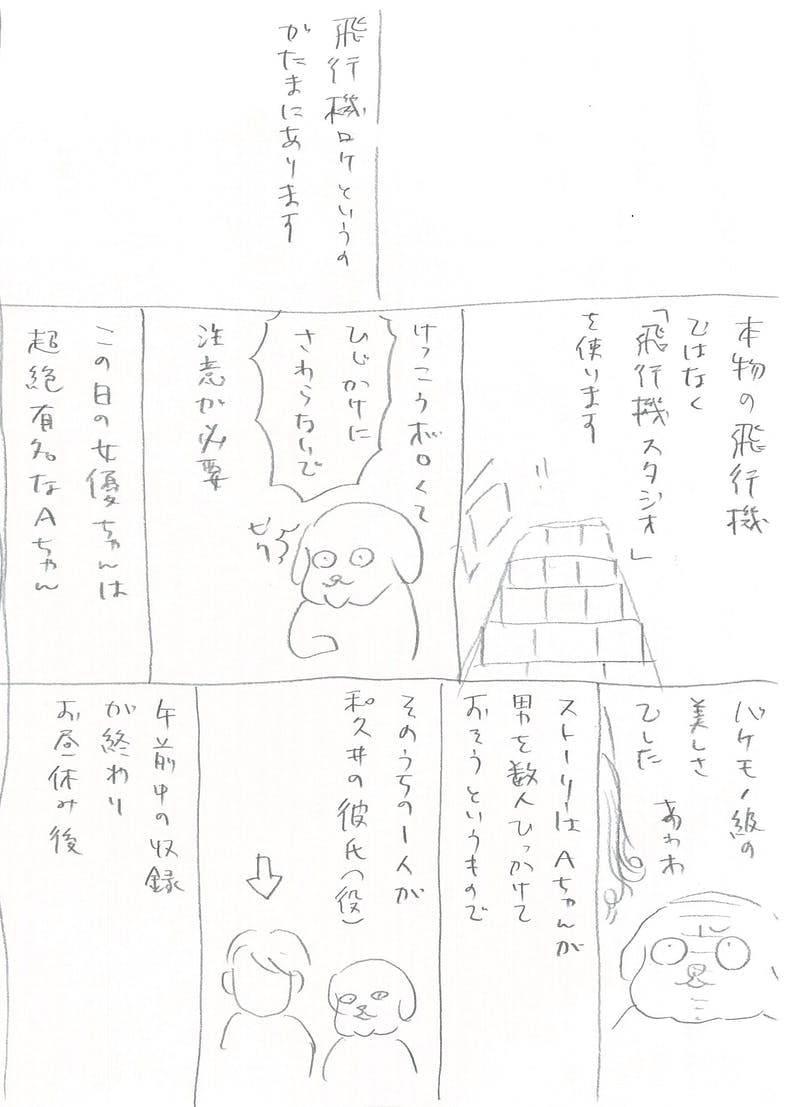 飛行機ロケというの
がたまにあります
本物の飛行機
ではなく
「飛行機スタジオ」
を使います
けっこうボロくて
ひじかけに
さわらないで
注意が必要
ビクッ
この日の女優ちゃんは
超絶有名なAちゃん
バケモノ級の
美しさ
でした
あわわ
ストーリーはAちゃんが
男を数人ひっかけて
おそうというもので
そのうちの1人が
和久井の彼氏(役)
午前中の収録
が終わり
お昼休み後